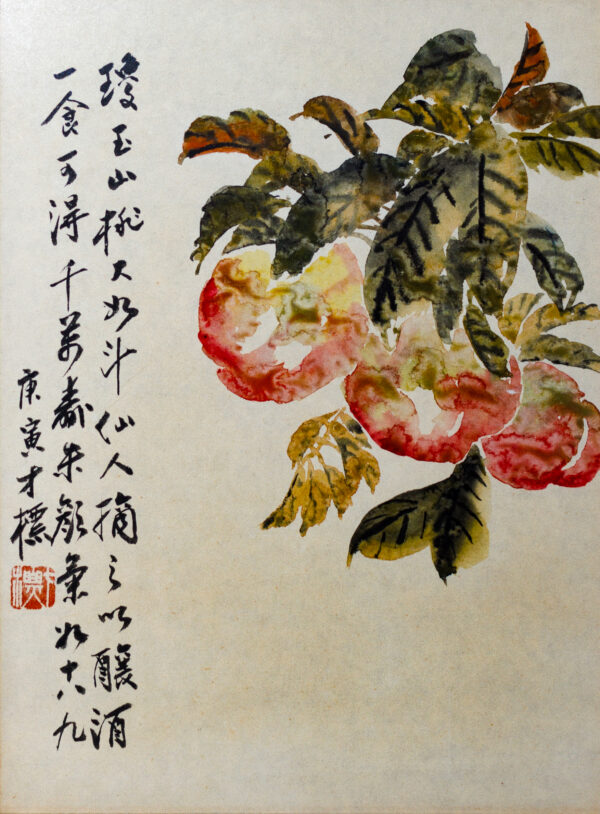 瓊玉山桃大如斗仙人摘之以釀酒
一食可淂千萬壽朱顏如十八九
庚寅才標